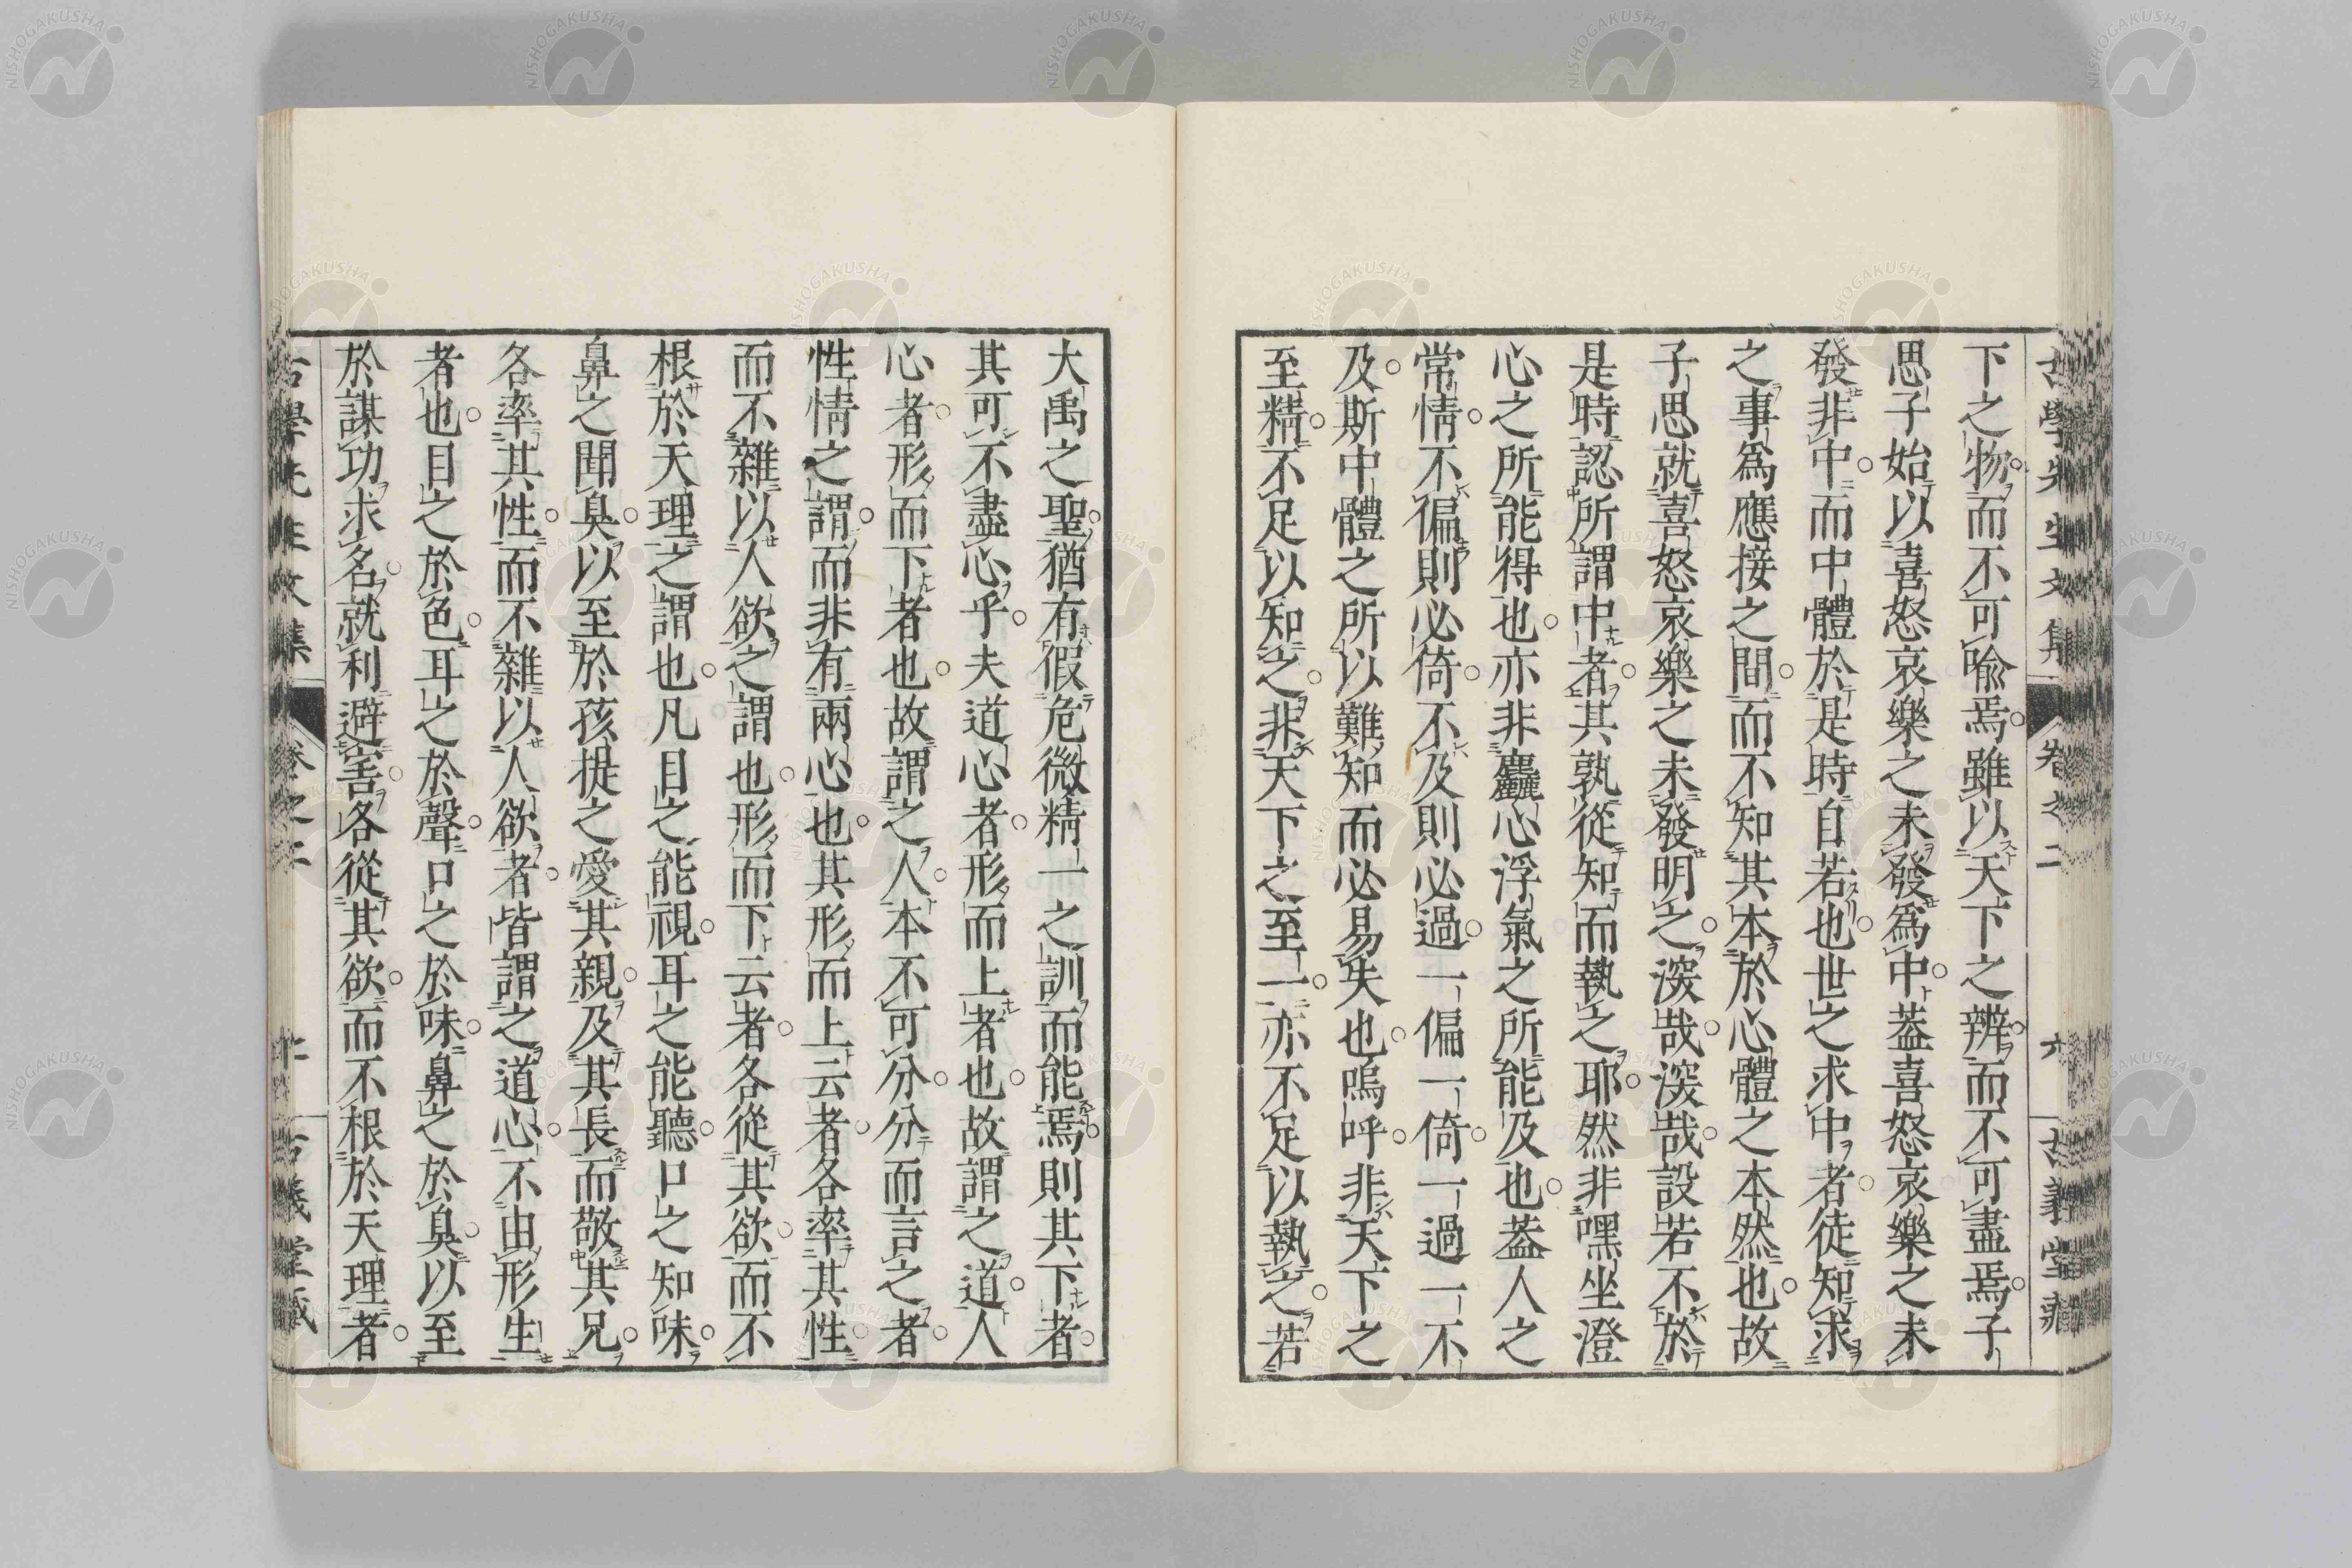 古學先生文集 卷之二 六 古義堂藏
下之物而不可喩焉雖以天下之辨而不可盡焉子
思子始以喜怒哀樂之未發爲中葢喜怒哀樂之未
發非中而中體於是時自若也世之求中者徒知求
之事爲應接之間而不知其本於心體之本然也故
子思就喜怒哀樂之未發明之深哉深哉設若不於
是時認所謂中者其孰從知而執之耶然非嘿坐澄
心之所能得也亦非麤心浮氣之所能及也葢人之
常情不偏則必倚不及則必過一偏一倚一過一不
及斯中體之所以難知而必易失也嗚呼非天下之
至精不足以知之非天下之至一亦不足以執之若
大禹之聖猶有假危微精一之訓而能焉則其下者
其可不盡心乎夫道心者形而上者也故謂之道人
心者形而下者也故謂之人本不可分分而言之者
性情之謂而非有兩心也其形而上云者各率其性
而不雜以人欲之謂也形而下云者各從其欲而不
根於天理之謂也凡目之能視耳之能聽口之知味
鼻之聞臭以至於孩提之愛其親及其長而敬其兄
各率其性而不雜以人欲者皆謂之道心不由形生
者也目之於色耳之於聲口之於味鼻之於臭以至
於謀功求名就利避害各從其欲而不根於天理者
古學先生文集 卷之二 古義堂藏
NISHOGAKUSHA